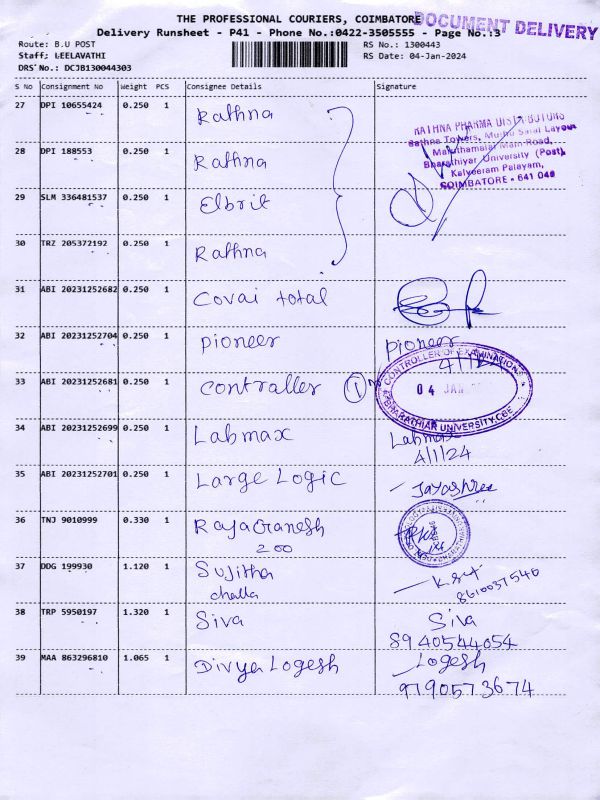 THE PROFESSIONAL COURIERS, COIMBATORE
DOCUMENT DELIVERY
Delivery Runsheet - P41 - Phone No.:0422-3505555 - Page No.:3
Route: B.U POST
RS No.: 1300443
Staff; LEELAVATHI
RS Date: 04-Jan-2024
DRS No.: DCJB130044303
S No Consignment No Weight PCS Consignee Details Signature
27 DPI 10655424 0.250 1 Rathna
RATHNA PHARMA DISTRIBUTORS
Rathna Towers, Muthu Saraf Layout
Maruthamalai Main Road,
Bharathiyar University (Post),
Kalveeram Palayam,
COIMBATORE - 641 046
28 DPI 188553 0.250 1 Rathna
29 SLM 336481537 0.250 1 Elbrit
30 TRZ 205372192 0.250 1 Rathna
31 ABI 20231252682 0.250 1 Covai total
32 ABI 20231252704 0.250 1 Pioneer Pioneer
4/1/24
33 ABI 20231252681 0.250 1 Contraller 1
CONTROLLER OF EXAMINATIONS
04 JAN
BHARATHIAR UNIVERSITY, CBE
34 ABI 20231252699 0.250 1 Labmax Labmax
4/1/24
35 ABI 20231252701 0.250 1 Large Logic Jayashree
36 TNJ 9010999 0.330 1 Raja Ganesh
200
37 DDG 199930 1.120 1 Sujitha
challa
8610037546
38 TRP 5950197 1.320 1 Siva Siva
8940544054
39 MAA 863296810 1.065 1 Divya Logesh Logesh
9790573674